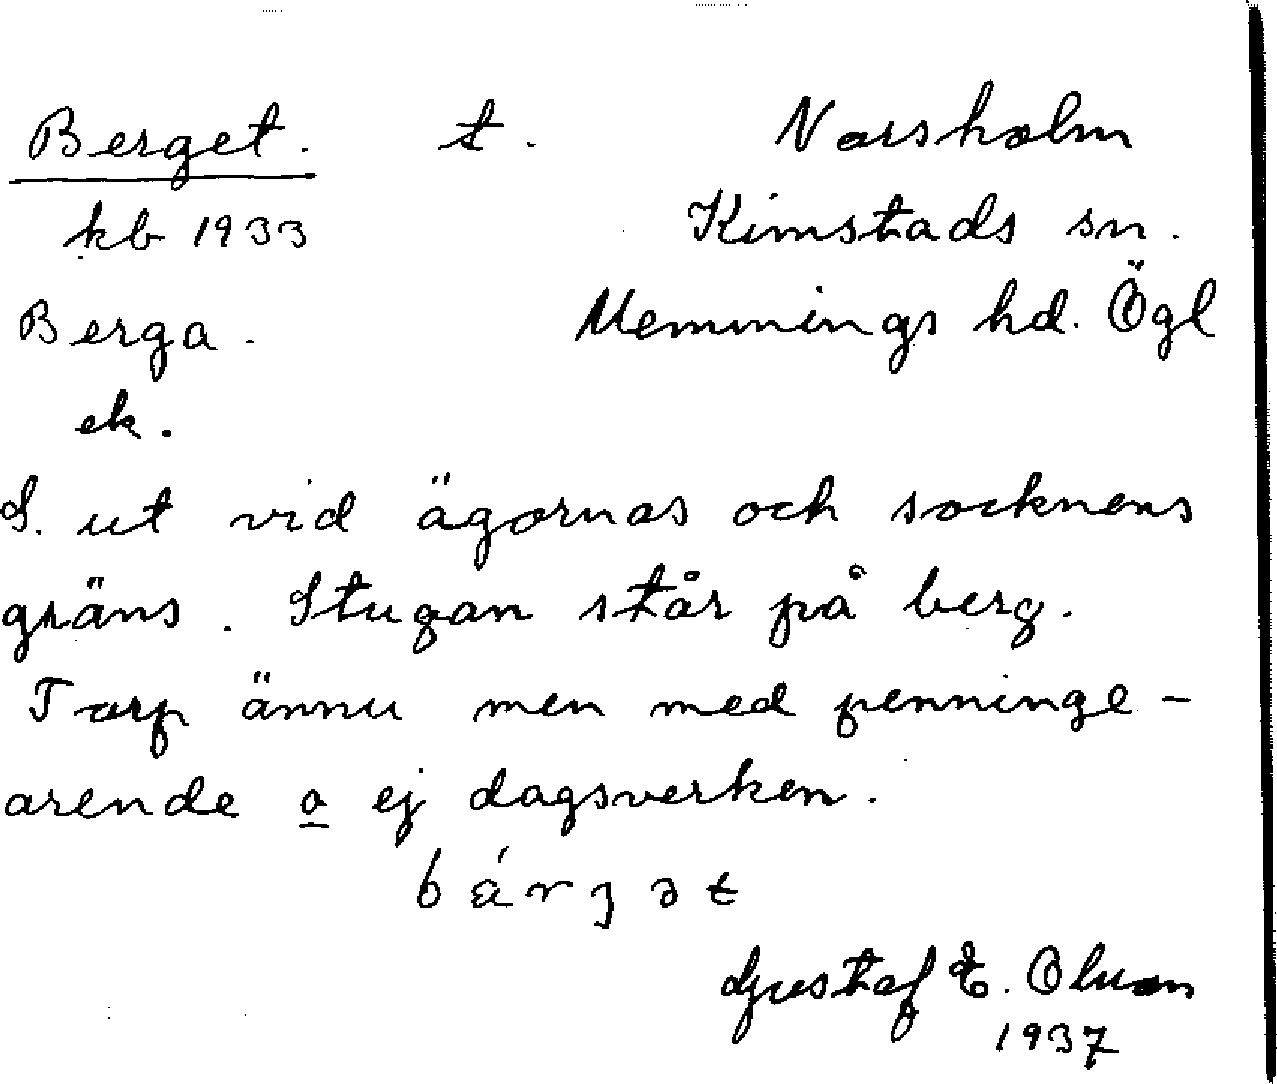 Berget. t. Norsholm
kb 1933 Kimstads sn.
Berga. Memmings hd. Ögl
ek.
S. ut vid ägornas och socknens
gräns. Stugan står på berg.
Torp ännu men med penninge-
arende o ej dagsverken.
Gustaf E. Olsson
1937